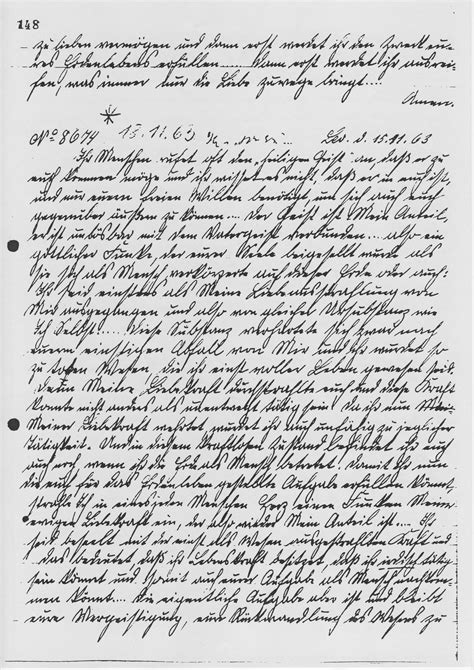 148
zu lieben vermögen und dann erst werdet ihr den Zweck eu-
res Erdenlebens erfüllen .... dann erst werdet ihr ausrei-
fen, was immer nur die Liebe zuwege bringt....
Amen.
No 8674 15.11.63 15.11.63
Ihr Menschen rufet oft den „heiligen Geist“ an, daß er zu
euch kommen möge und ihr wisset es nicht, daß er in euch ist,
und nur euren freien Willen benötigt, um sich auch euch
gegenüber äußern zu können.... Der Geist ist Mein Anteil,
er ist unlösbar mit dem Vatergeist verbunden.... also ein
göttlicher Funke, der eurer Seele beigesellt wurde als
sie sich als Mensch verkörperte auf dieser Erde oder auch:
Ihr seid einstens als Meine Liebeausstrahlung von
Mir ausgegangen und also von gleicher Ursubstanz wie
Ich Selbst.... Diese Substanz verhärtete sich zwar nach
eurem einstigen Abfall von Mir und ihr wurdet so
zu toten Wesen die ihr einst voller Leben gewesen seid.
Denn Meine Liebekraft durchstrahlte euch und diese Kraft
konnte nicht anders als unentwegt tätig sein Da ihr nun
Meiner Liebekraft wehrtet, wurdet ihr auch unfähig zu jeglicher
Tätigkeit. Und in diesem kraftlosen Zustand befindet ihr euch
auch noch, wenn ihr die Erde als Mensch betretet. Damit ihr nun
die euch für das Erdenleben gestellte Aufgabe erfüllen könnt,
strahle Ich in eines jeden Menschen Herz einen Funken Meiner
ewigen Liebekraft ein, der also wieder Mein Anteil ist.... Ihr
seid beseelt mit der einst als Wesen ausgestrahlten Kraft und
das bedeutet, daß ihr Lebenskraft besitzet, daß ihr irdisch tätig
sein könnet und somit auch eurer Aufgabe als Mensch nachkom-
men könnt.... Die eigentliche Aufgabe aber ist und bleibt
eure Vergeistigung, eine Rückwandlung des Wesens zu